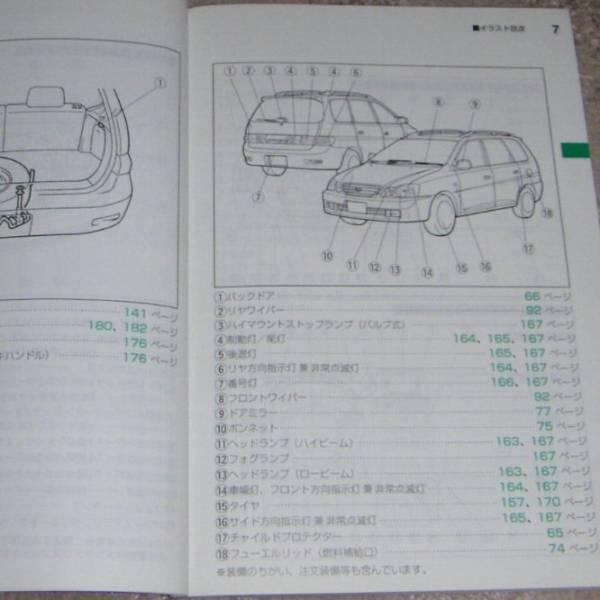 ①
141 ページ
180、182 ページ
176 ページ
ハンドル） 176 ページ
■イラスト目次 7
① ② ③ ④ ⑤ ④ ⑥
⑧ ⑨
⑦ ⑱
⑩ ⑪ ⑫ ⑬ ⑭ ⑮ ⑯ ⑰
①バックドア 66 ページ
②リヤワイパー 92 ページ
③ハイマウントストップランプ（バルブ式） 167 ページ
④制動灯／尾灯 164、165、167 ページ
⑤後退灯 165、167 ページ
⑥リヤ方向指示灯 兼 非常点滅灯 164、167 ページ
⑦番号灯 166、167 ページ
⑧フロントワイパー 92 ページ
⑨ドアミラー 77 ページ
⑩ボンネット 75 ページ
⑪ヘッドランプ（ハイビーム） 163、167 ページ
⑫フォグランプ 167 ページ
⑬ヘッドランプ（ロービーム） 163、167 ページ
⑭車幅灯、フロント方向指示灯 兼 非常点滅灯 164、167 ページ
⑮タイヤ 157、170 ページ
⑯サイド方向指示灯 兼 非常点滅灯 165、167 ページ
⑰チャイルドプロテクター 65 ページ
⑱フューエルリッド（燃料補給口） 74 ページ
※装備のちがい、注文装備等も含んでいます。